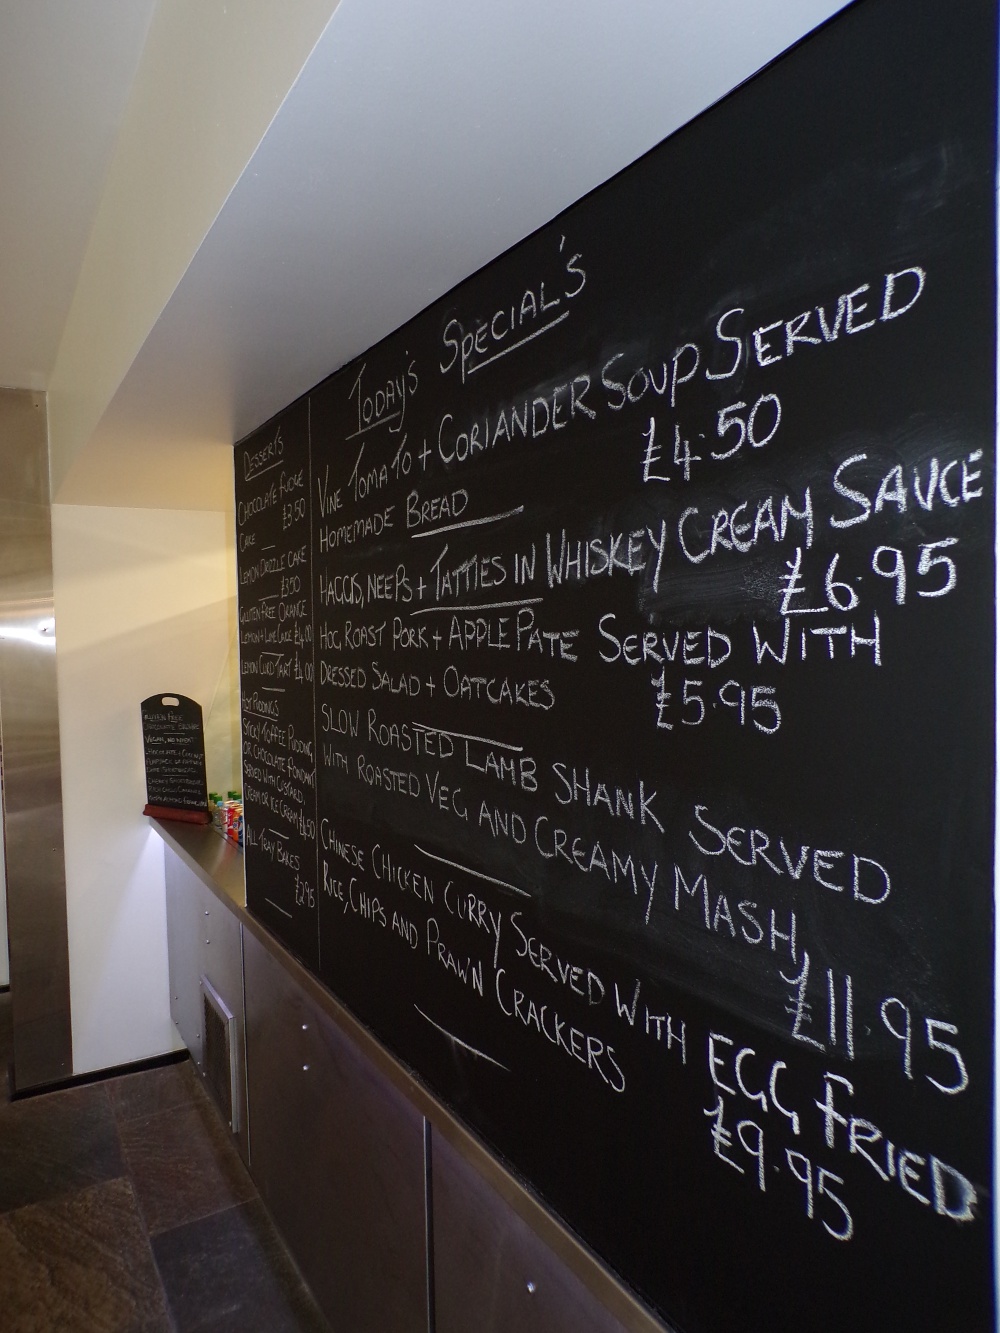 Desserts
Chocolate Fudge
Cake £3.50
Lemon Drizzle Cake
£3.50
Gluten Free Orange
Lemon + Lime Cake £4.00
Lemon Curd Tart £4.00
Hot Puddings
Sticky Toffee Pudding
or Chocolate Fondant
Served with Custard,
Cream or Ice Cream £4.50
All Tray Bakes
£2.95
Today's Special's
Vine Tomato + Coriander Soup Served
Homemade Bread £4.50
Haggis, Neeps + Tatties in Whiskey Cream Sauce
£6.95
Hog Roast Pork + Apple Pate Served With
Dressed Salad + Oatcakes £5.95
Slow Roasted Lamb Shank Served
With Roasted Veg and Creamy Mash
£11.95
Chinese Chicken Curry Served With Egg Fried
Rice, Chips and Prawn Crackers £9.95